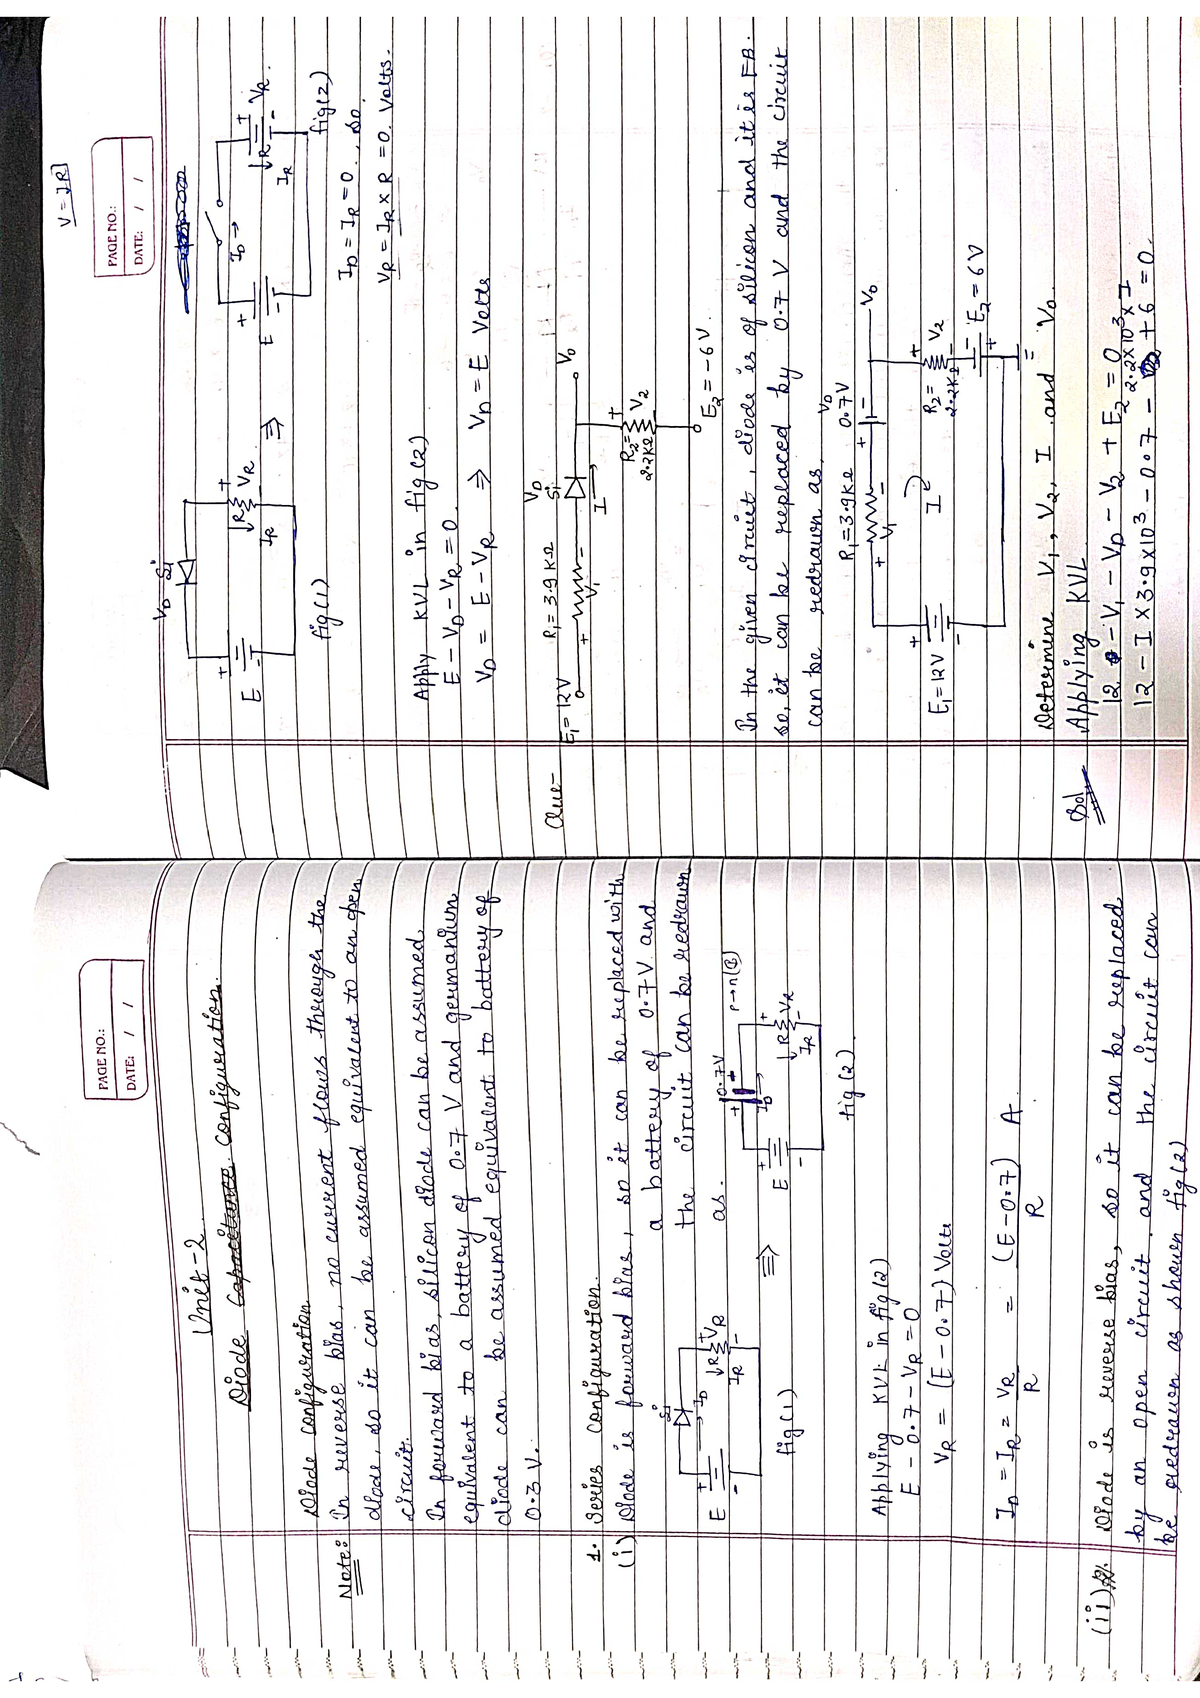 PAGE NO.:
DATE: / /
Unit-2
Diode Capacitance Configuration.
Diode configuration
Note: In reverse bias, no current flows through the
diode, so it can be assumed equivalent to an open
circuit.
In forward bias, silicon diode can be assumed
equivalent to a battery of 0.7 V and germanium
diode can be assumed equivalent to battery of
0.3 V.
1. Series configuration.
(i) Diode is forward bias, so it can be replaced with
a battery of 0.7 V and
the circuit can be redrawn
as.
Si
E + - ID ↓R + VR - IR
fig (1)
⇒
+ 0.7V P→n(B)
E + - ID ↓R + VR - IR
fig (2)
Applying KVL in fig(2)
E - 0.7 - VR = 0
VR = (E - 0.7) Volts
ID = IR = VR/R = (E-0.7)/R A.
(ii) Diode is reverse bias, so it can be replaced
by an open circuit and the circuit can
be redrawn as shown fig(2)
V = IR
PAGE NO.:
DATE: / /
VD Si
E + - ↓R + VR IR
fig (1)
⇒
ID →
E + - ↓R + VR - IR
fig (2)
ID = IR = 0, so
VR = IR X R = 0 Volts.
Apply KVL in fig (2)
E - VD - VR = 0
VD = E - VR ⇒ VD = E Volts
Que- E1 = 12V R1 = 3.9 KΩ VD Si Vo
+ V1 - I
R2 = 2.2KΩ + V2 -
E2 = -6 V
In the given circuit, diode is of silicon and it is FB.
so, it can be replaced by 0.7 V and the circuit
can be redrawn as,
R1 = 3.9KΩ VD 0.7V Vo
+ V1 - + -
E1 = 12V + - I R2 = 2.2KΩ + V2 -
- E2 = 6V +
Determine V1, V2, I and Vo.
Sol Applying KVL
12 - V1 - VD - V2 + E2 = 0
12 - I X 3.9X10³ - 0.7 - 2.2X10³XI + 6 = 0.